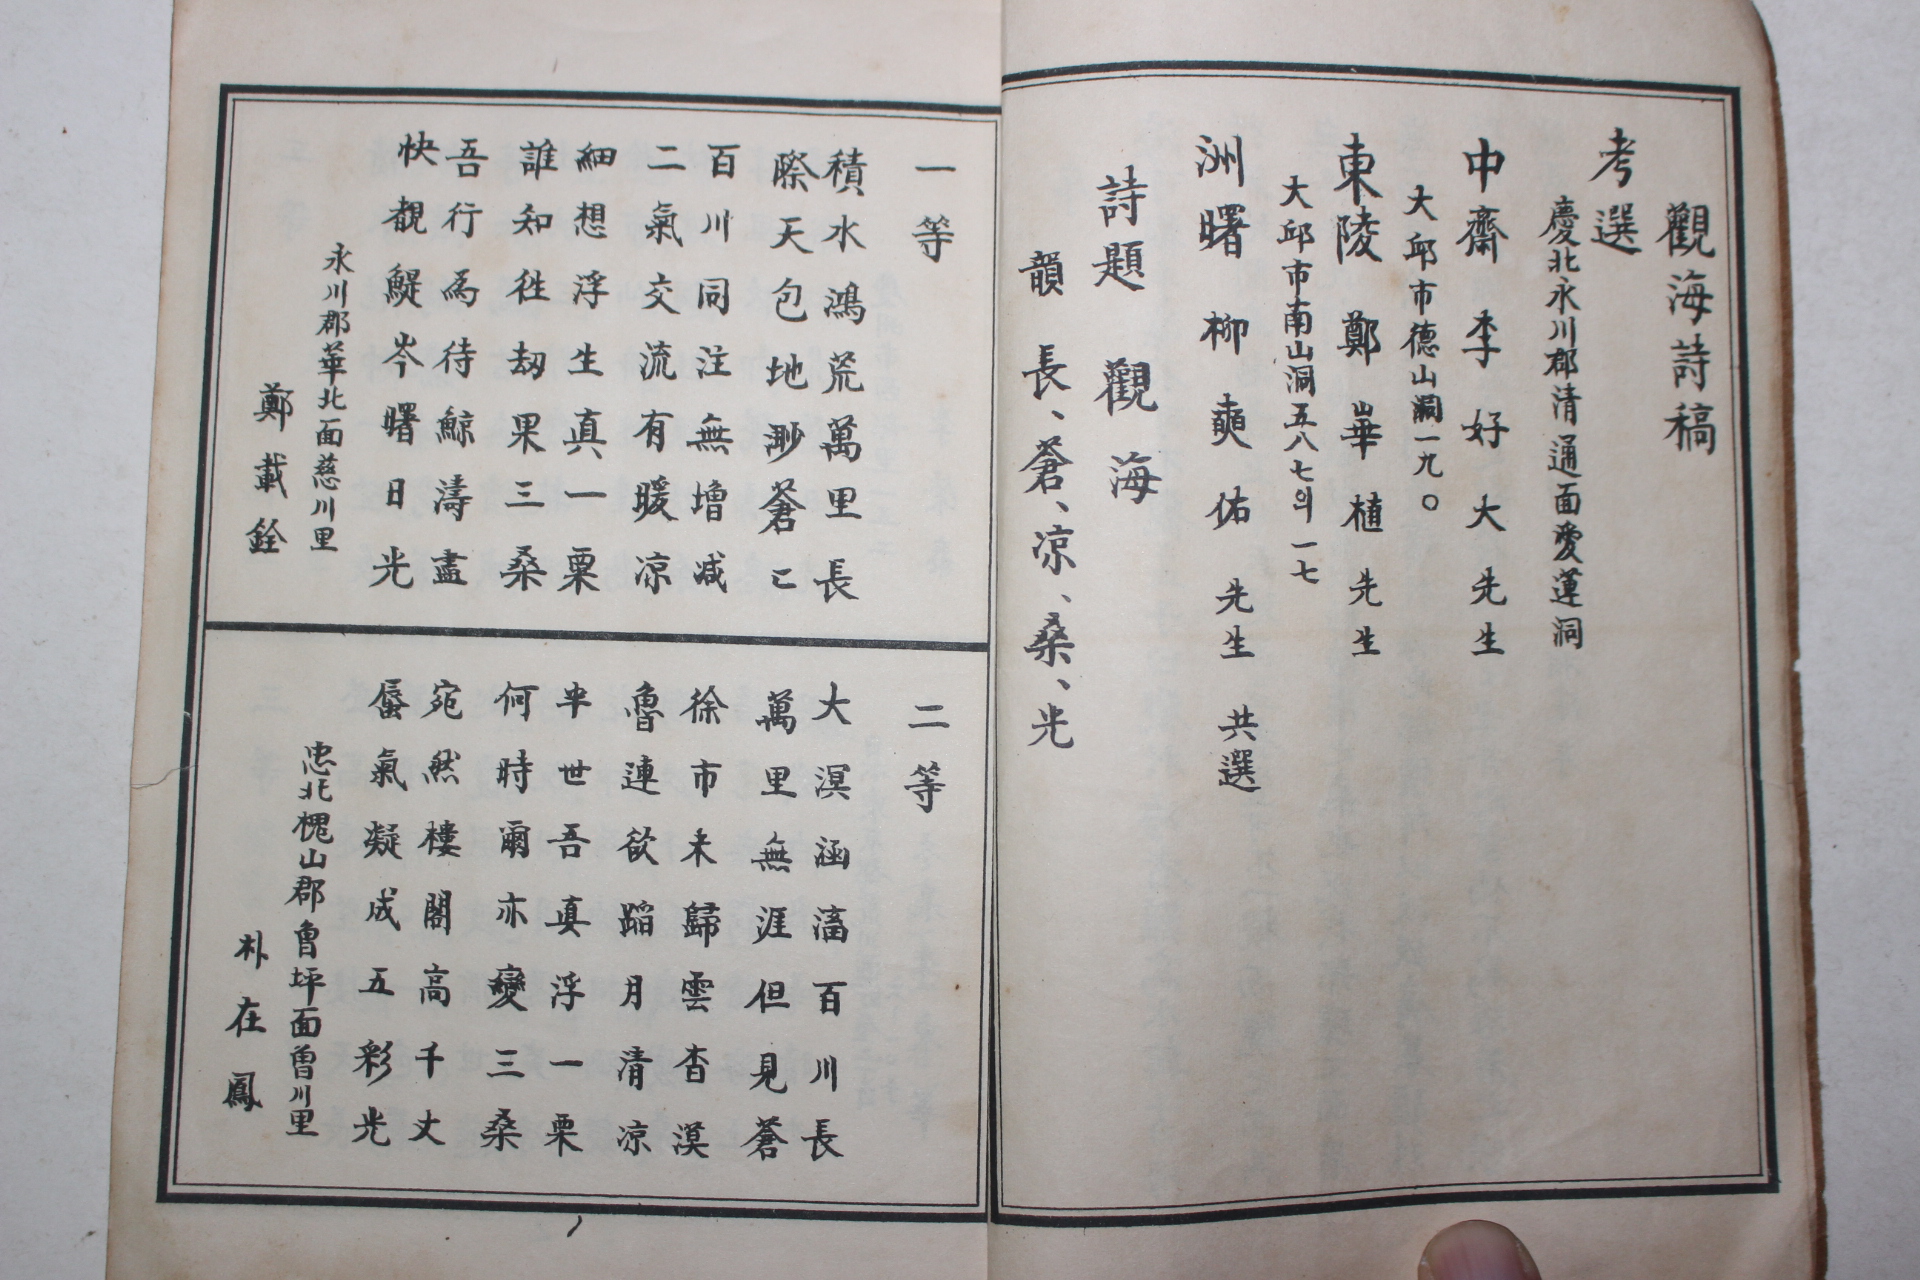 觀海詩稿
考選
慶北永川郡清通面愛蓮洞
中齋 李好大 先生
大邱市德山洞一九○
東陵 鄭崋植 先生
大邱市南山洞五八七의一七
洲曙 柳奭佑 先生 共選
詩題 觀海
韻 長、蒼、凉、桑、光
一等
積水鴻荒萬里長
際天包地渺蒼〻
百川同注無增减
二氣交流有暖凉
細想浮生真一粟
誰知往刼果三桑
吾行為待鯨濤盡
快覩鯷岑曙日光
永川郡華北面慈川里
鄭載銓
二等
大溟涵滀百川長
萬里無涯但見蒼
徐市未歸雲杳漠
魯連欲蹈月清凉
半世吾真浮一粟
何時爾亦變三桑
宛然樓閣高千丈
蜃氣凝成五彩光
忠北槐山郡曾坪面曾川里
朴在鳳